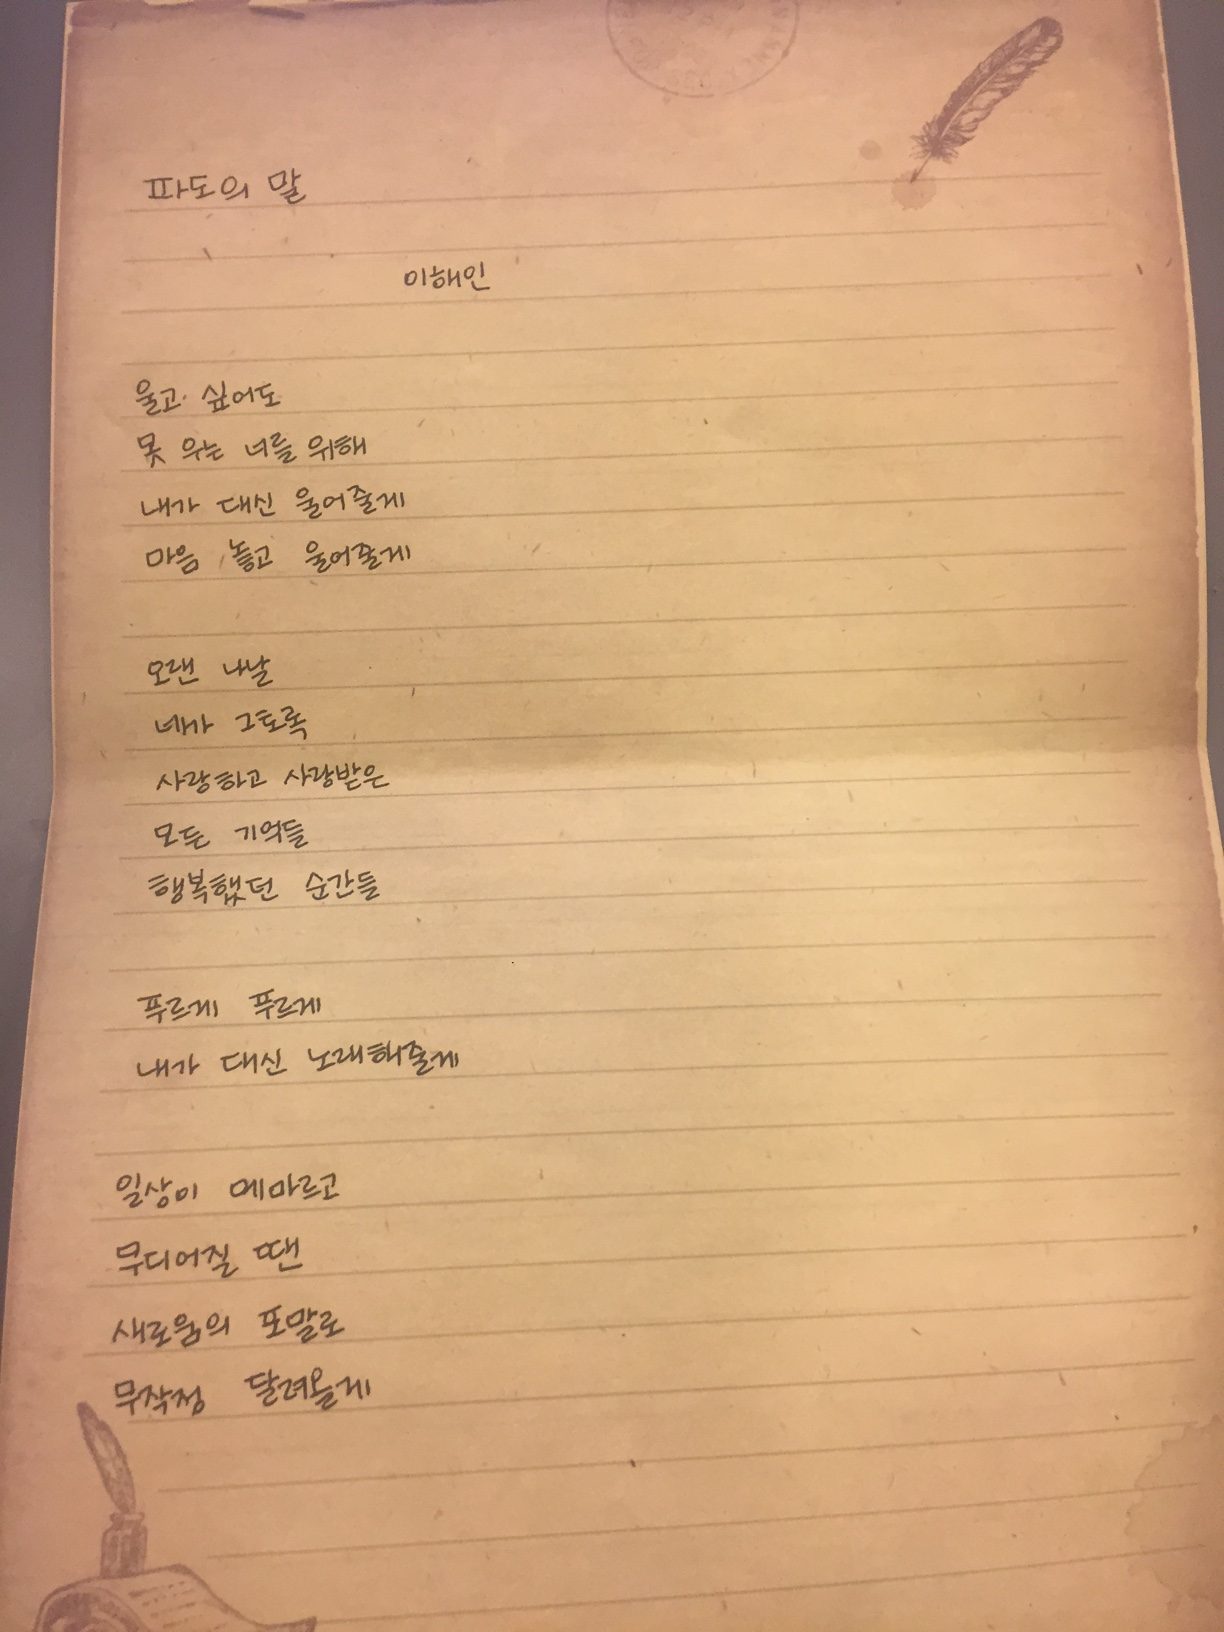 파도의 말
이해인
울고 싶어도
못 우는 너를 위해
내가 대신 울어줄게
마음 놓고 울어줄게
오랜 나날
네가 그토록
사랑하고 사랑받은
모든 기억들
행복했던 순간들
푸르게 푸르게
내가 대신 노래해줄게
일상이 메마르고
무디어질 땐
새로움의 포말로
무작정 달려올게